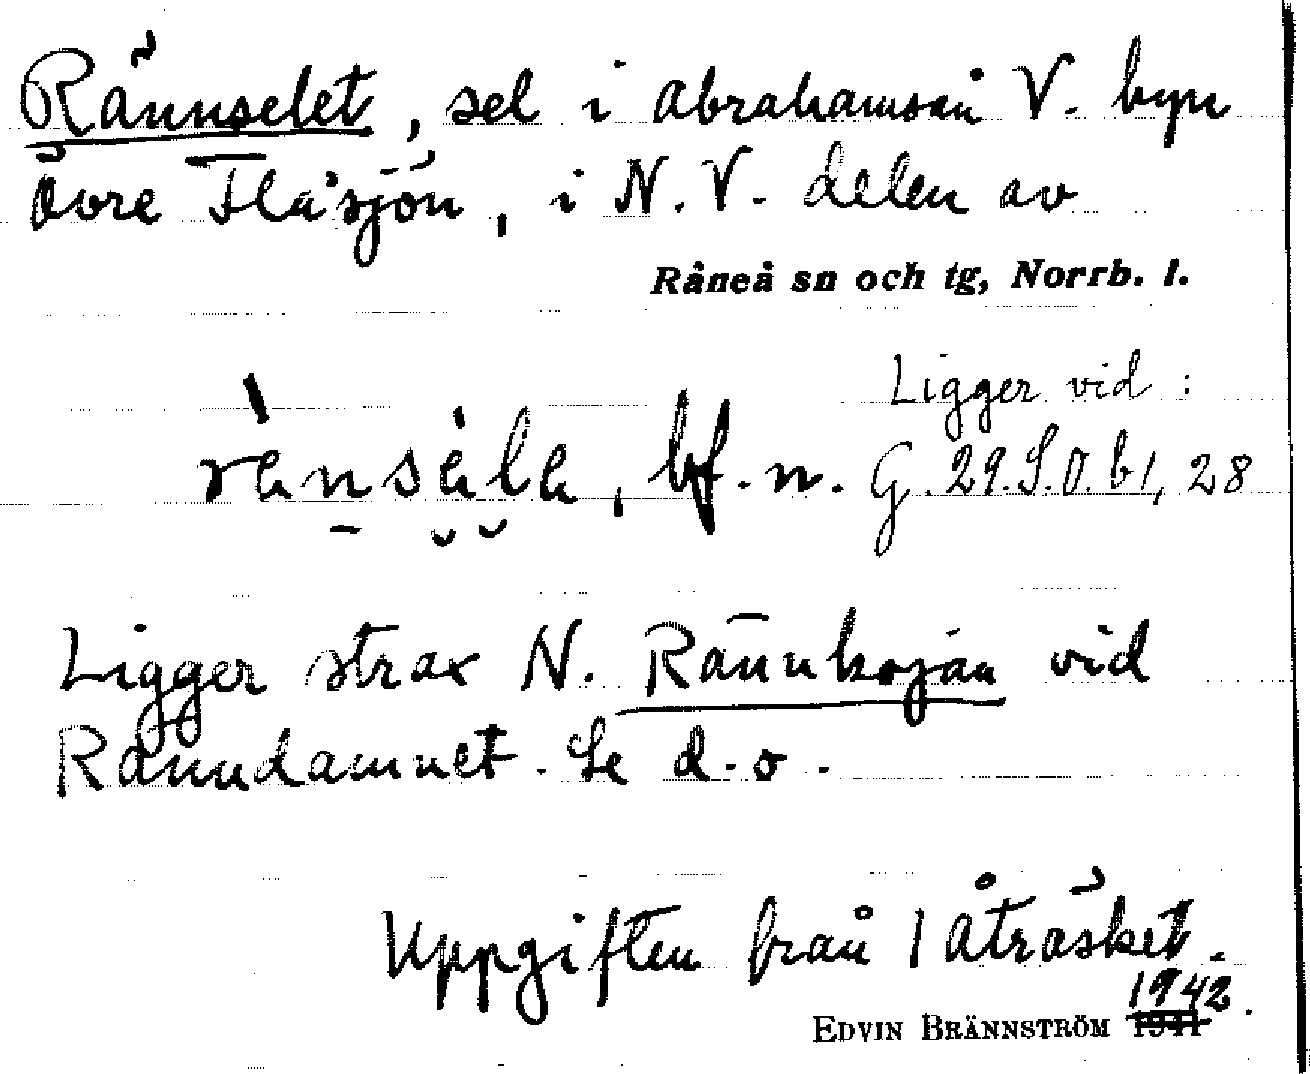 Rännselet, sel i Abrahamsån V. byn
Övre Flåsjön, i N.V. delen av
Råneå sn och tg, Norrb. l.
Ligger vid:
ränsäla, bf. n. G. 29.S.O. b1, 28
Ligger strax N. Rännkojan vid
Ränndammet. Se d.o.
Uppgiften från 1 Åträsket.
1942.
EDVIN BRÄNNSTRÖM 1941